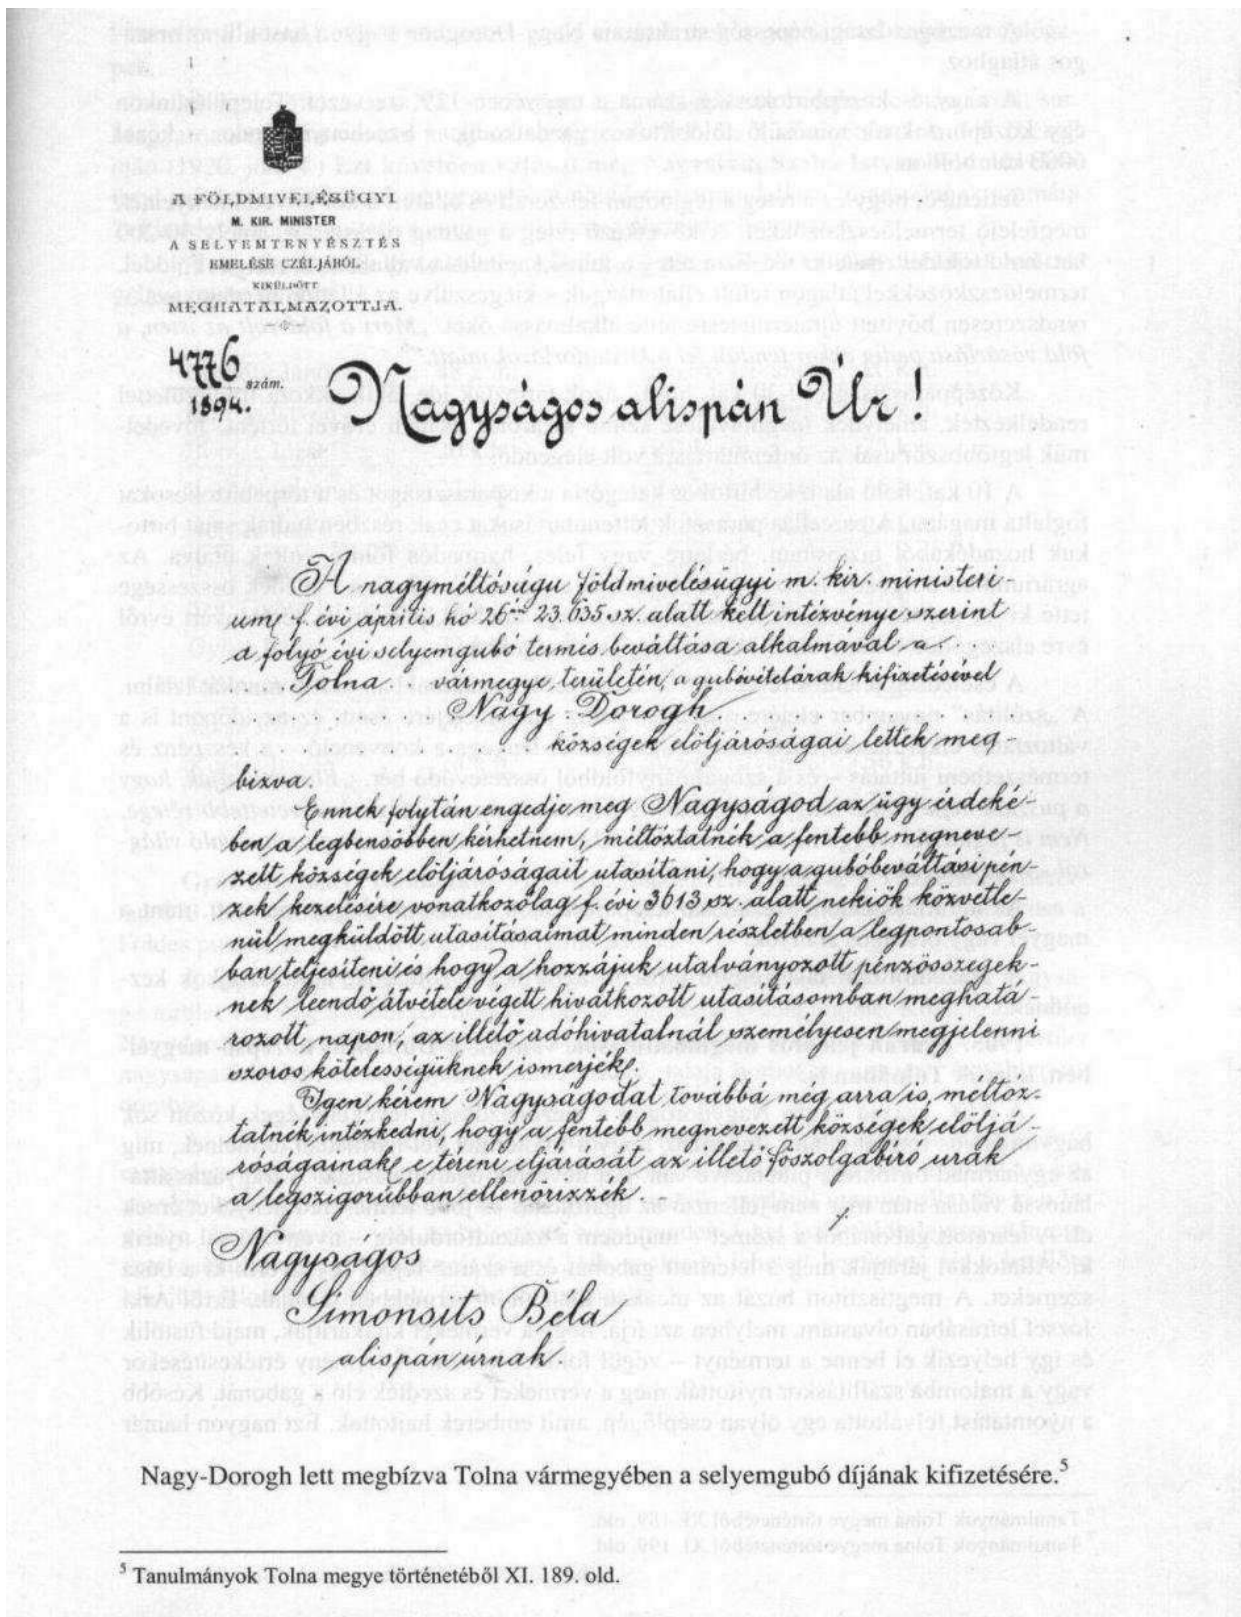 A FÖLDMIVELÉSÜGYI
M. KIR. MINISTER
A SELYEMTENYÉSZTÉS
EMELÉSE CZÉLJÁBÓL
KIKÜLDÖTT
MEGHATALMAZOTTJA.
4776 szám.
1894.
Nagyságos alispán Úr!
A nagyméltóságu földmivelésügyi m. kir. ministeri-
um f. évi április hó 26án 23.635 sz. alatt kelt intézvénye szerint
a folyó évi selyemgubó termés beváltása alkalmával a
Tolna vármegye területén, a gubóvételárak kifizetésével
Nagy-Dorogh
községek elöljáróságai lettek meg-
bizva.
Ennek folytán engedje meg Nagyságod az ügy érdeké-
ben a legbensőbben kérhetnem, méltóztatnék a fentebb megneve-
zett községek elöljáróságait utasítani, hogy a gubóbeváltási pén-
zek kezelésére vonatkozólag f. évi 3613 sz. alatt nekiök közvetle-
nül megküldött utasításaimat minden részletben a legpontosab-
ban teljesíteni és hogy a hozzájuk utalványozott pénzösszegek-
nek leendő átvétele végett hivatkozott utasításomban meghatá-
rozott napon, az illető adóhivatalnál személyesen megjelenni
szoros kötelességüknek ismerjék.
Igen kérem Nagyságodat továbbá még arra is, méltóz-
tatnék intézkedni, hogy a fentebb megnevezett községek elöljá-
róságainak e téreni eljárását az illető főszolgabíró urak
a legszigorúbban ellenőrizzék. -
./.
Nagyságos
Simonsits Béla
alispán úrnak.
Nagy-Dorogh lett megbízva Tolna vármegyében a selyemgubó díjának kifizetésére.⁵
⁵ Tanulmányok Tolna megye történetéből XI. 189. old.